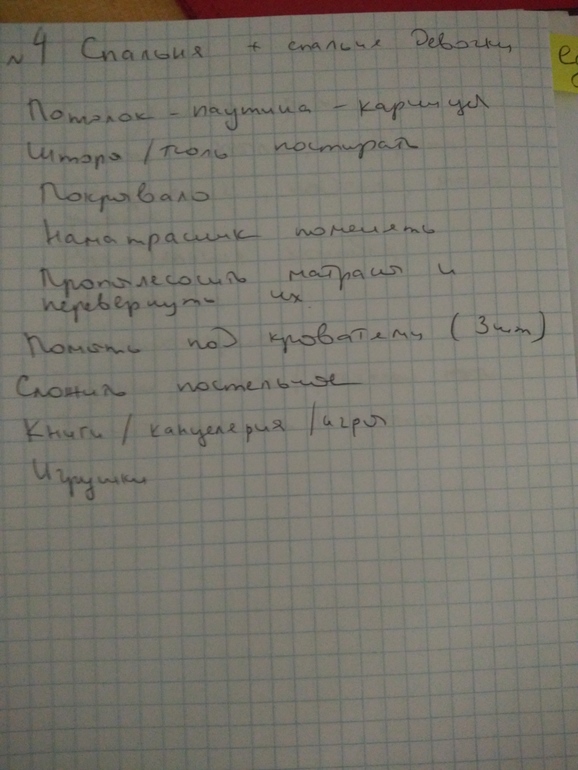 №4 Спальня + спальня девочки
ед
Потолок - паутина - карнизы
Шторы / тюль постирать
Покрывало
Наматрасник поменять
Пропылесосить матрасы и
перевернуть их
Помыть под кроватями (3 шт)
Сложить постельное
Книги / канцелярия / игры
Игрушки